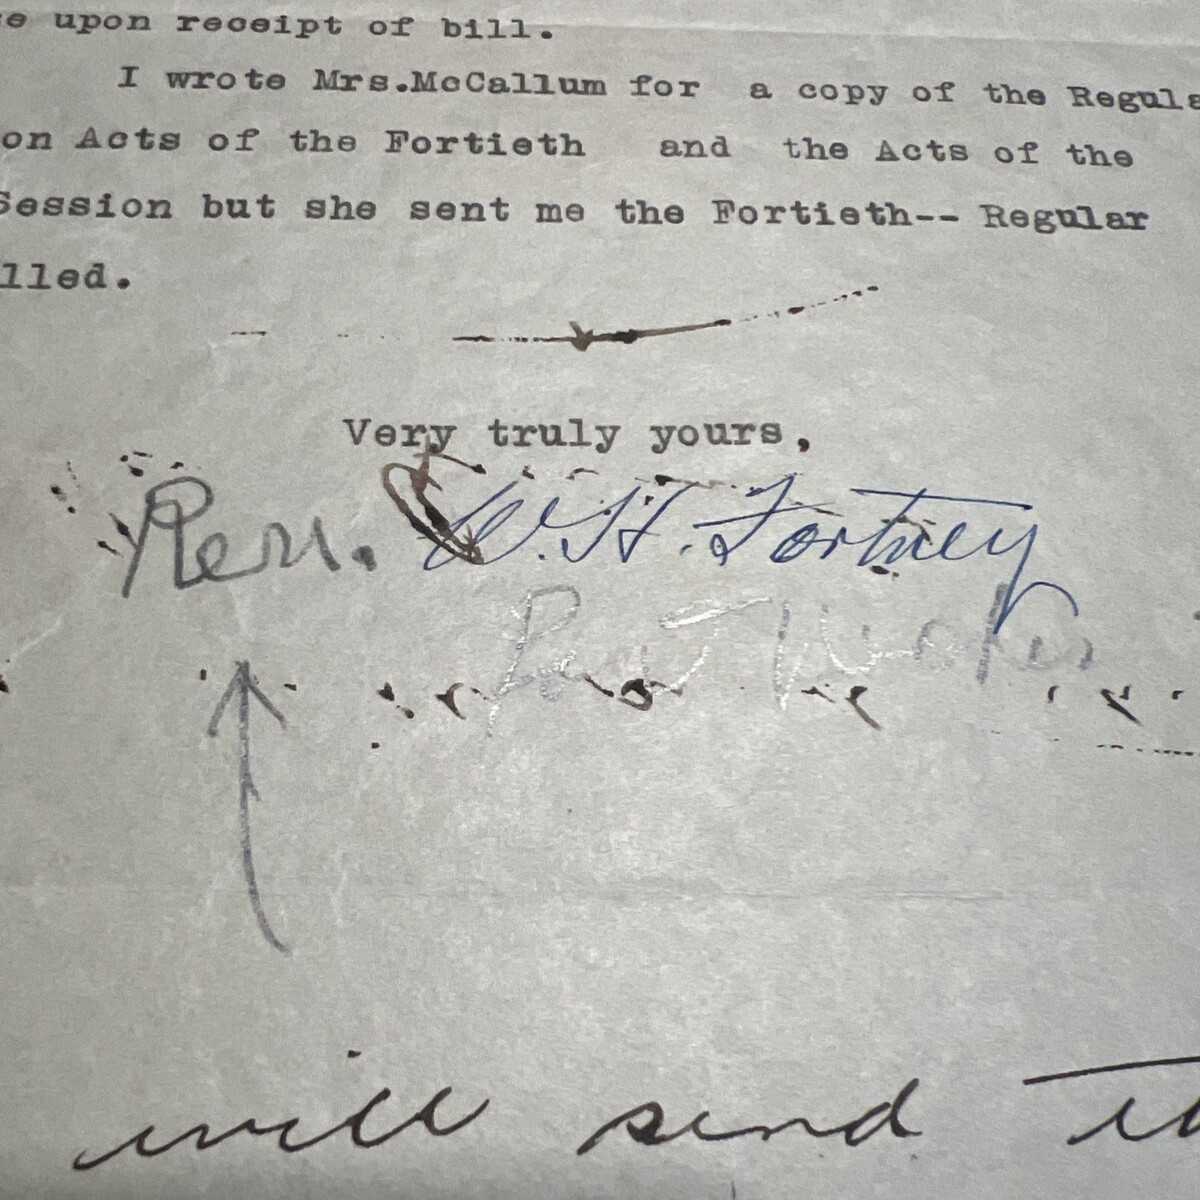 e upon receipt of bill.
I wrote Mrs.McCallum for a copy of the Regula
on Acts of the Fortieth and the Acts of the
Session but she sent me the Fortieth-- Regular
lled.
Very truly yours,
Rev. W. H. Fortney
will send